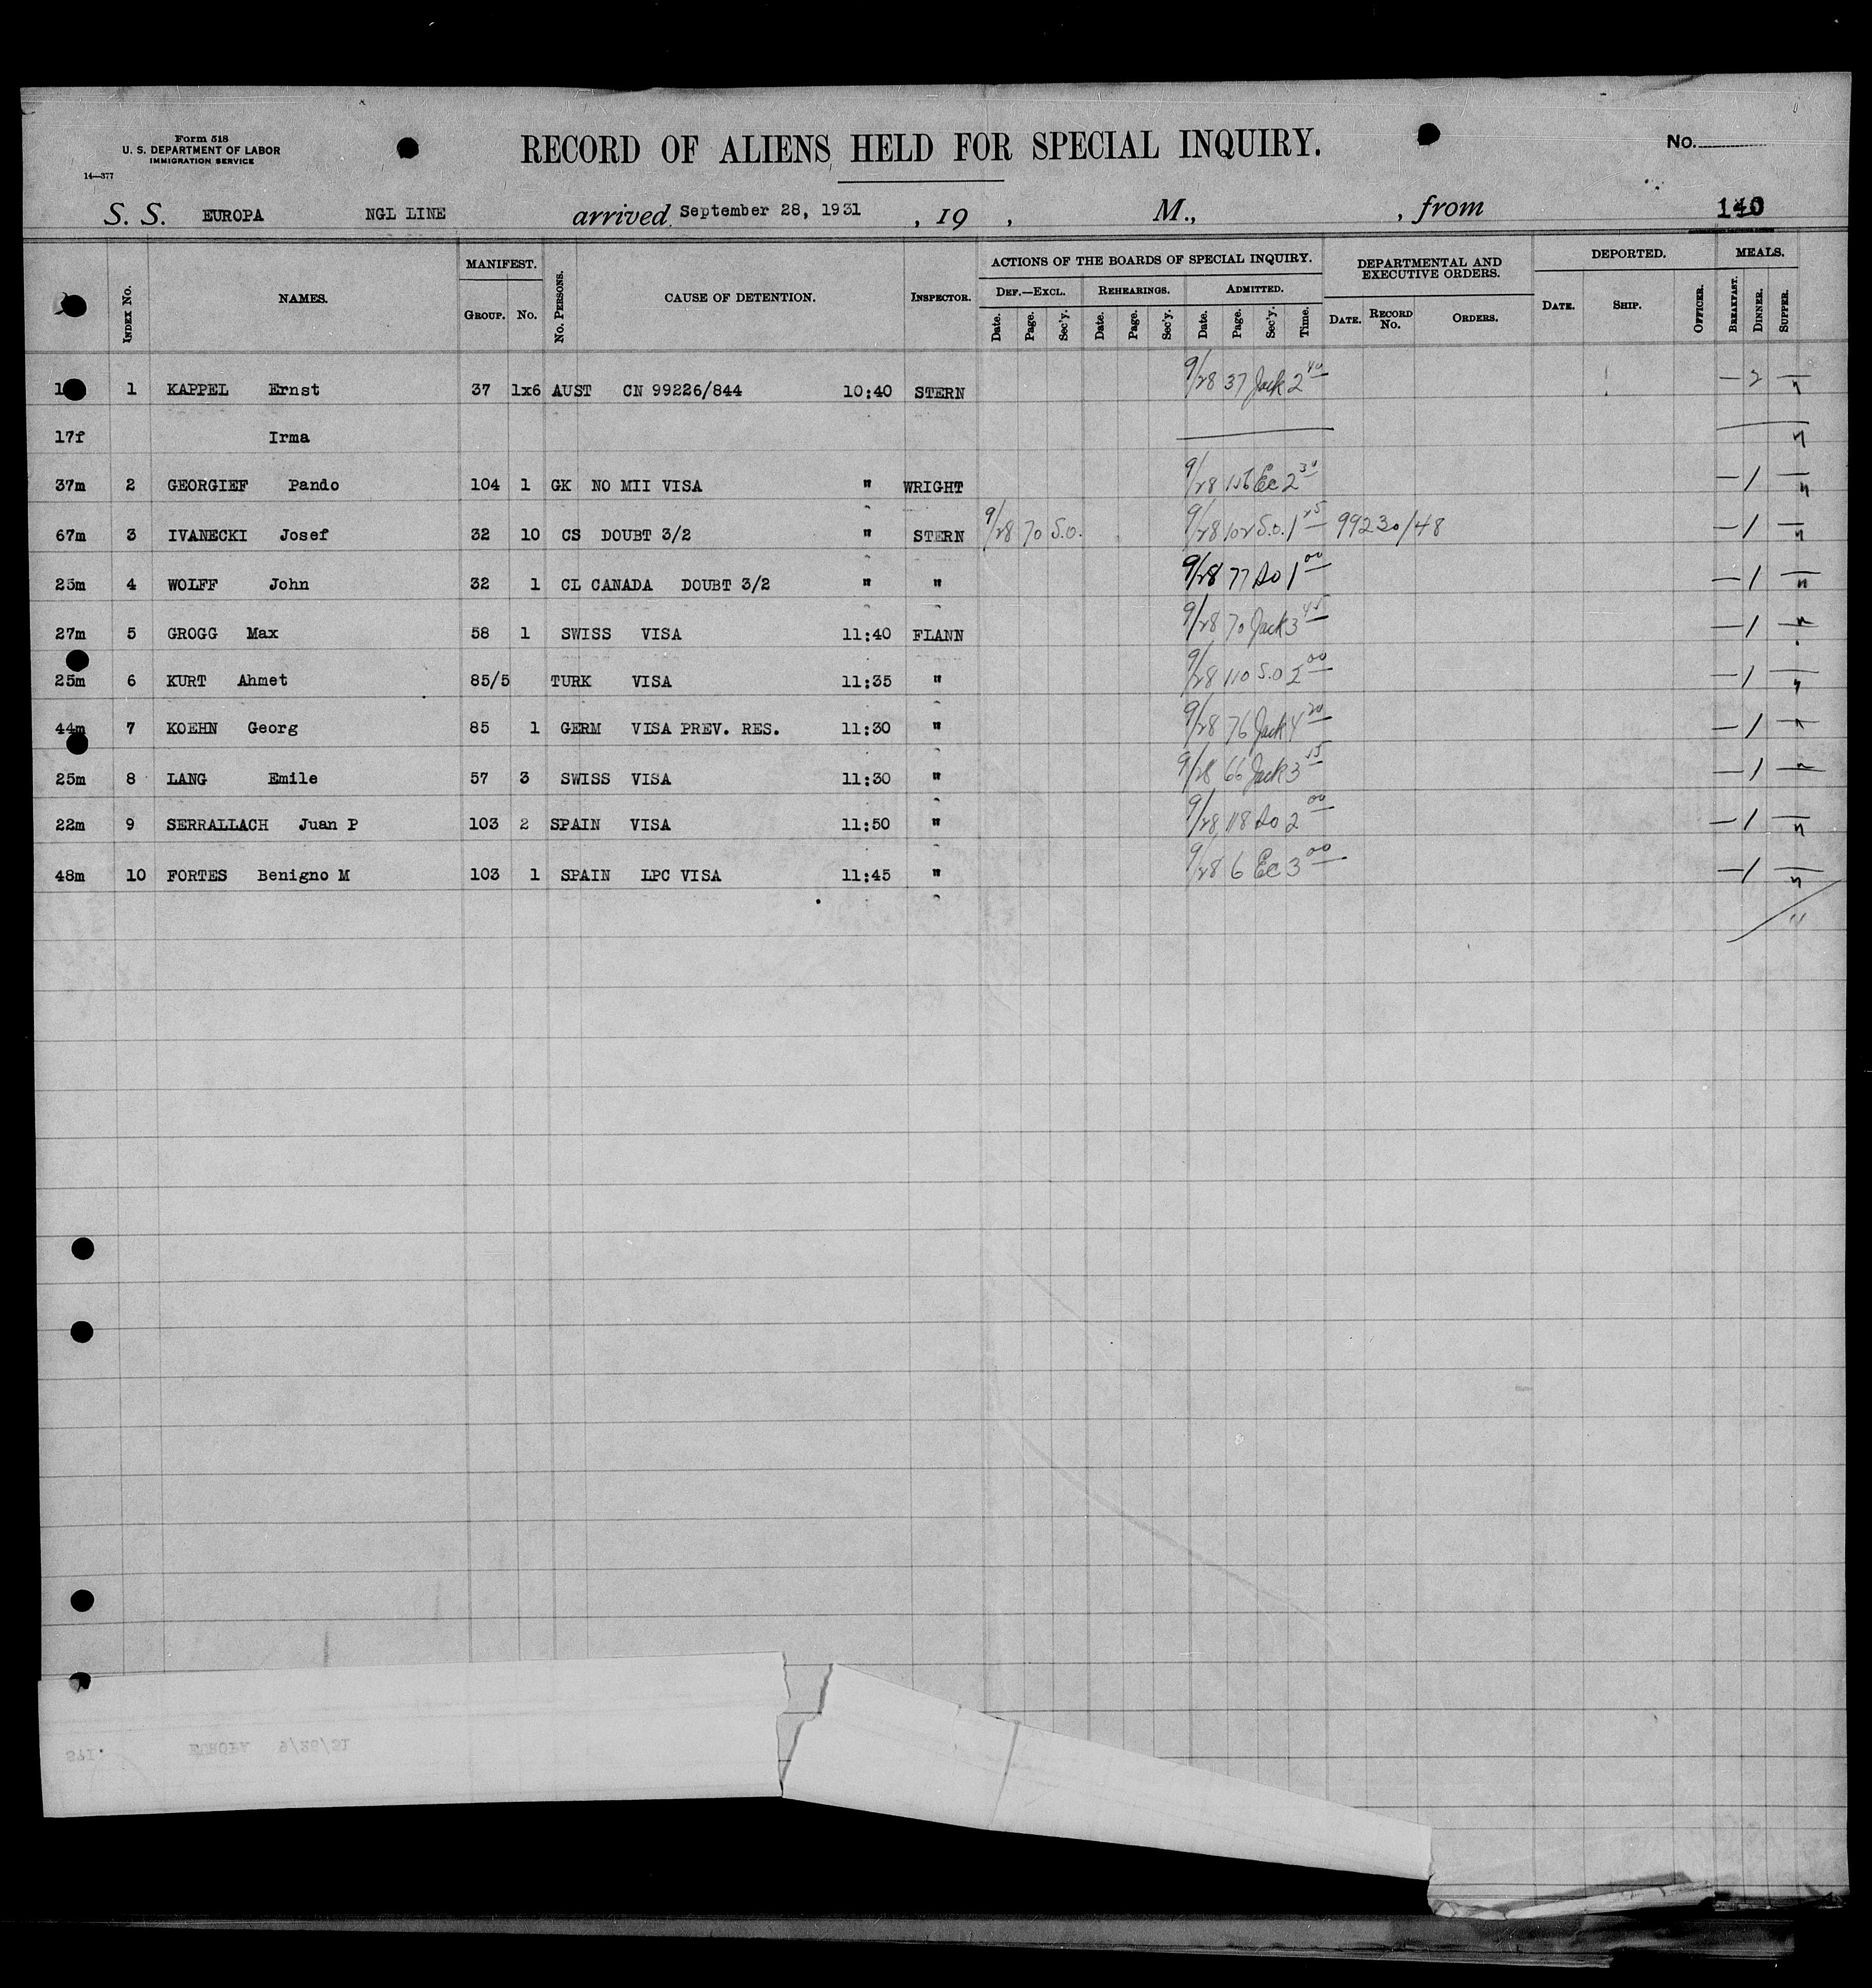 Form 518
U. S. DEPARTMENT OF LABOR
IMMIGRATION SERVICE
14—377
RECORD OF ALIENS HELD FOR SPECIAL INQUIRY.
No.
S. S. EUROPA NGL LINE arrived September 28, 1931 , 19 , M., , from 140
INDEX No. NAMES. MANIFEST. GROUP. No. No. PERSONS. CAUSE OF DETENTION. INSPECTOR. ACTIONS OF THE BOARDS OF SPECIAL INQUIRY. DEPARTMENTAL AND EXECUTIVE ORDERS. DEPORTED. MEALS.
DEF.—EXCL. REHEARINGS. ADMITTED.
Date. Page. Sec'y. Date. Page. Sec'y. Date. Page. Sec'y. Time. DATE. RECORD No. ORDERS. DATE. SHIP. OFFICER. BREAKFAST. DINNER. SUPPER.
1 KAPPEL Ernst 37 1x6 AUST CN 99226/844 10:40 STERN 9/28 37 Jack 2 40 — 2 —
17f Irma
37m 2 GEORGIEF Pando 104 1 GK NO MII VISA " WRIGHT 9/28 Ec 2 30 — 1 —
67m 3 IVANECKI Josef 32 10 CS DOUBT 3/2 " STERN 9/28 70 S.O. 9/28 102 S.O. 1 25 99230/48 — 1 —
25m 4 WOLFF John 32 1 CL CANADA DOUBT 3/2 " " 9/28 77 So 1 00 — 1 —
27m 5 GROGG Max 58 1 SWISS VISA 11:40 FLANN 9/28 70 Jack 3 45 — 1 —
25m 6 KURT Ahmet 85/5 TURK VISA 11:35 " 9/28 110 S.O 2 00 — 1 —
44m 7 KOEHN Georg 85 1 GERM VISA PREV. RES. 11:30 " 9/28 76 Jack 4 20 — 1 —
25m 8 LANG Emile 57 3 SWISS VISA 11:30 " 9/28 66 Jack 3 15 — 1 —
22m 9 SERRALLACH Juan P 103 2 SPAIN VISA 11:50 " 9/28 118 So 2 00 — 1 —
48m 10 FORTES Benigno M 103 1 SPAIN LPC VISA 11:45 " 9/28 6 Ec 3 00 — 1 —